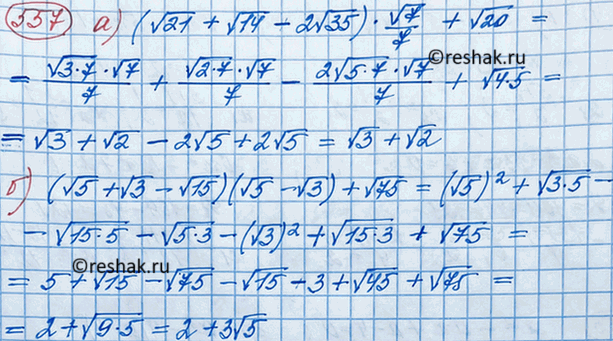 557 а) (√21 + √14 − 2√35) · √7/7 + √20 =
= √3·7·√7/7 + √2·7·√7/7 − 2√5·7·√7/7 + √4·5 =
= √3 + √2 − 2√5 + 2√5 = √3 + √2
©reshak.ru
б) (√5 + √3 − √15)(√5 − √3) + √75 = (√5)² + √3·5 −
− √15·5 − √5·3 − (√3)² + √15·3 + √75 =
©reshak.ru
= 5 + √15 − √75 − √15 − 3 + √45 + √75 =
= 2 + √9·5 = 2 + 3√5